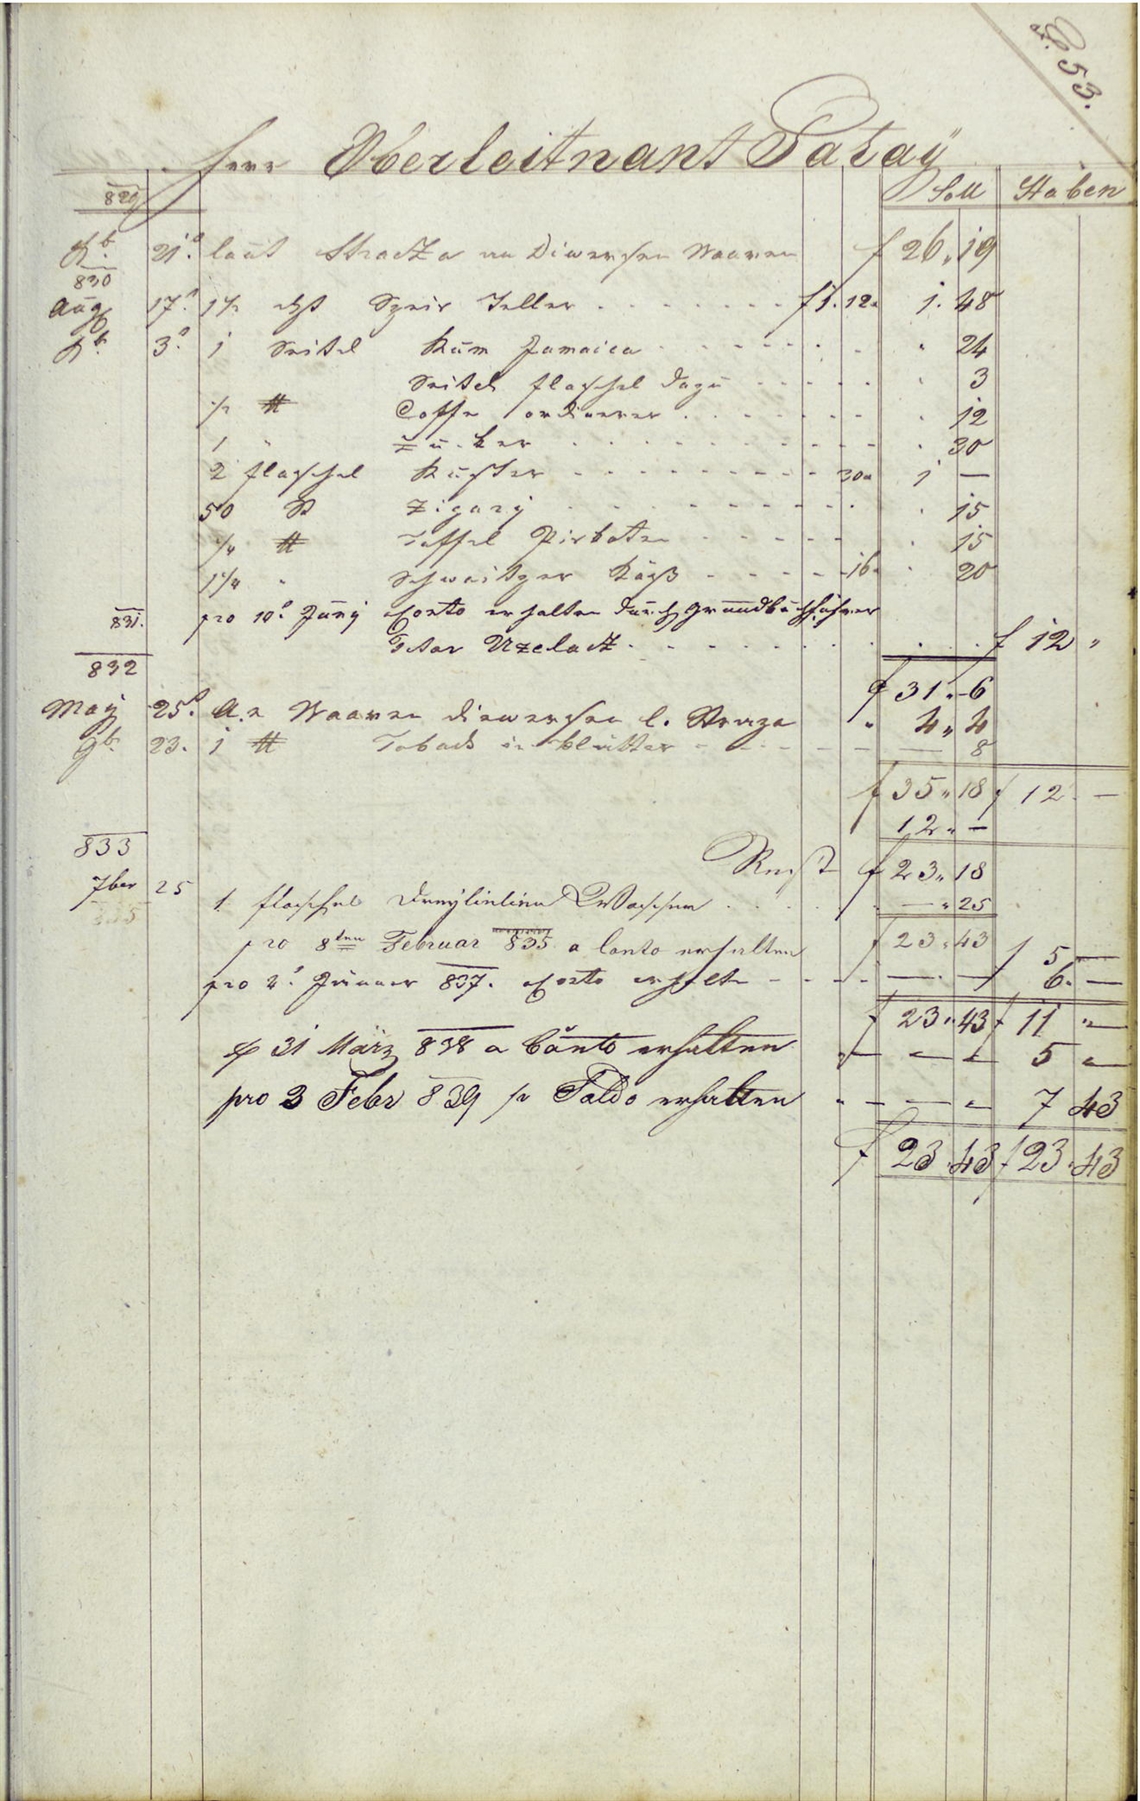 53.
Herr Oberleitnant
Soll Haben
829
Xb. 21. laut Strazza an Diwersen Waaren f 26,, 19
830
Aug 17. 1½ Speis Teller f 1. 12. 1. 48
Xb. 3. 1 Seitel Rum Jamaica 24
Seitel flaschel dazu 3
½ ℔ Coffe ordinerer 12
1 " Zuker 30
2 flaschel 30 1 —
50 St Zigary 15
¼ ℔ 15
1¼ " Schweitzer Käß 16 20
831. pro 10. Juny Conto erhalten durch Grundbuchführer
Uzelatz f 12 "
832 f 31. 6
May 25. An Waaren diewersen l. Strazza " 4,, 4
9b. 23. 1 ℔ Toback in blätter — 8
f 35,, 18 f 12 —
12,, —
833 Rest f 23,, 18
7ber 25 1 flaschel — ,, 25
835
pro 8ten Februar 835 a Conto erhalten f 23,, 43 f 5 —
pro 2. Jänner 837. a Conto erhalten — — 6. —
f 23,, 43 f 11 ,, —
31 März 838 a Conto erhalten " — — — 5 —
pro 3 Febr 839 pr Saldo erhalten " — — — 7 43
f 23. 43 f 23. 43